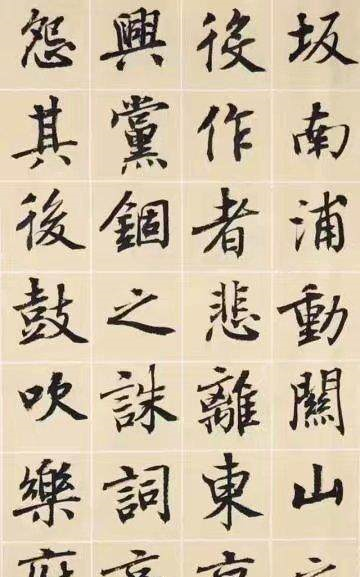 坂南浦動關山
後作者悲離東
興黨錮之誅詞
怨其後鼓吹樂